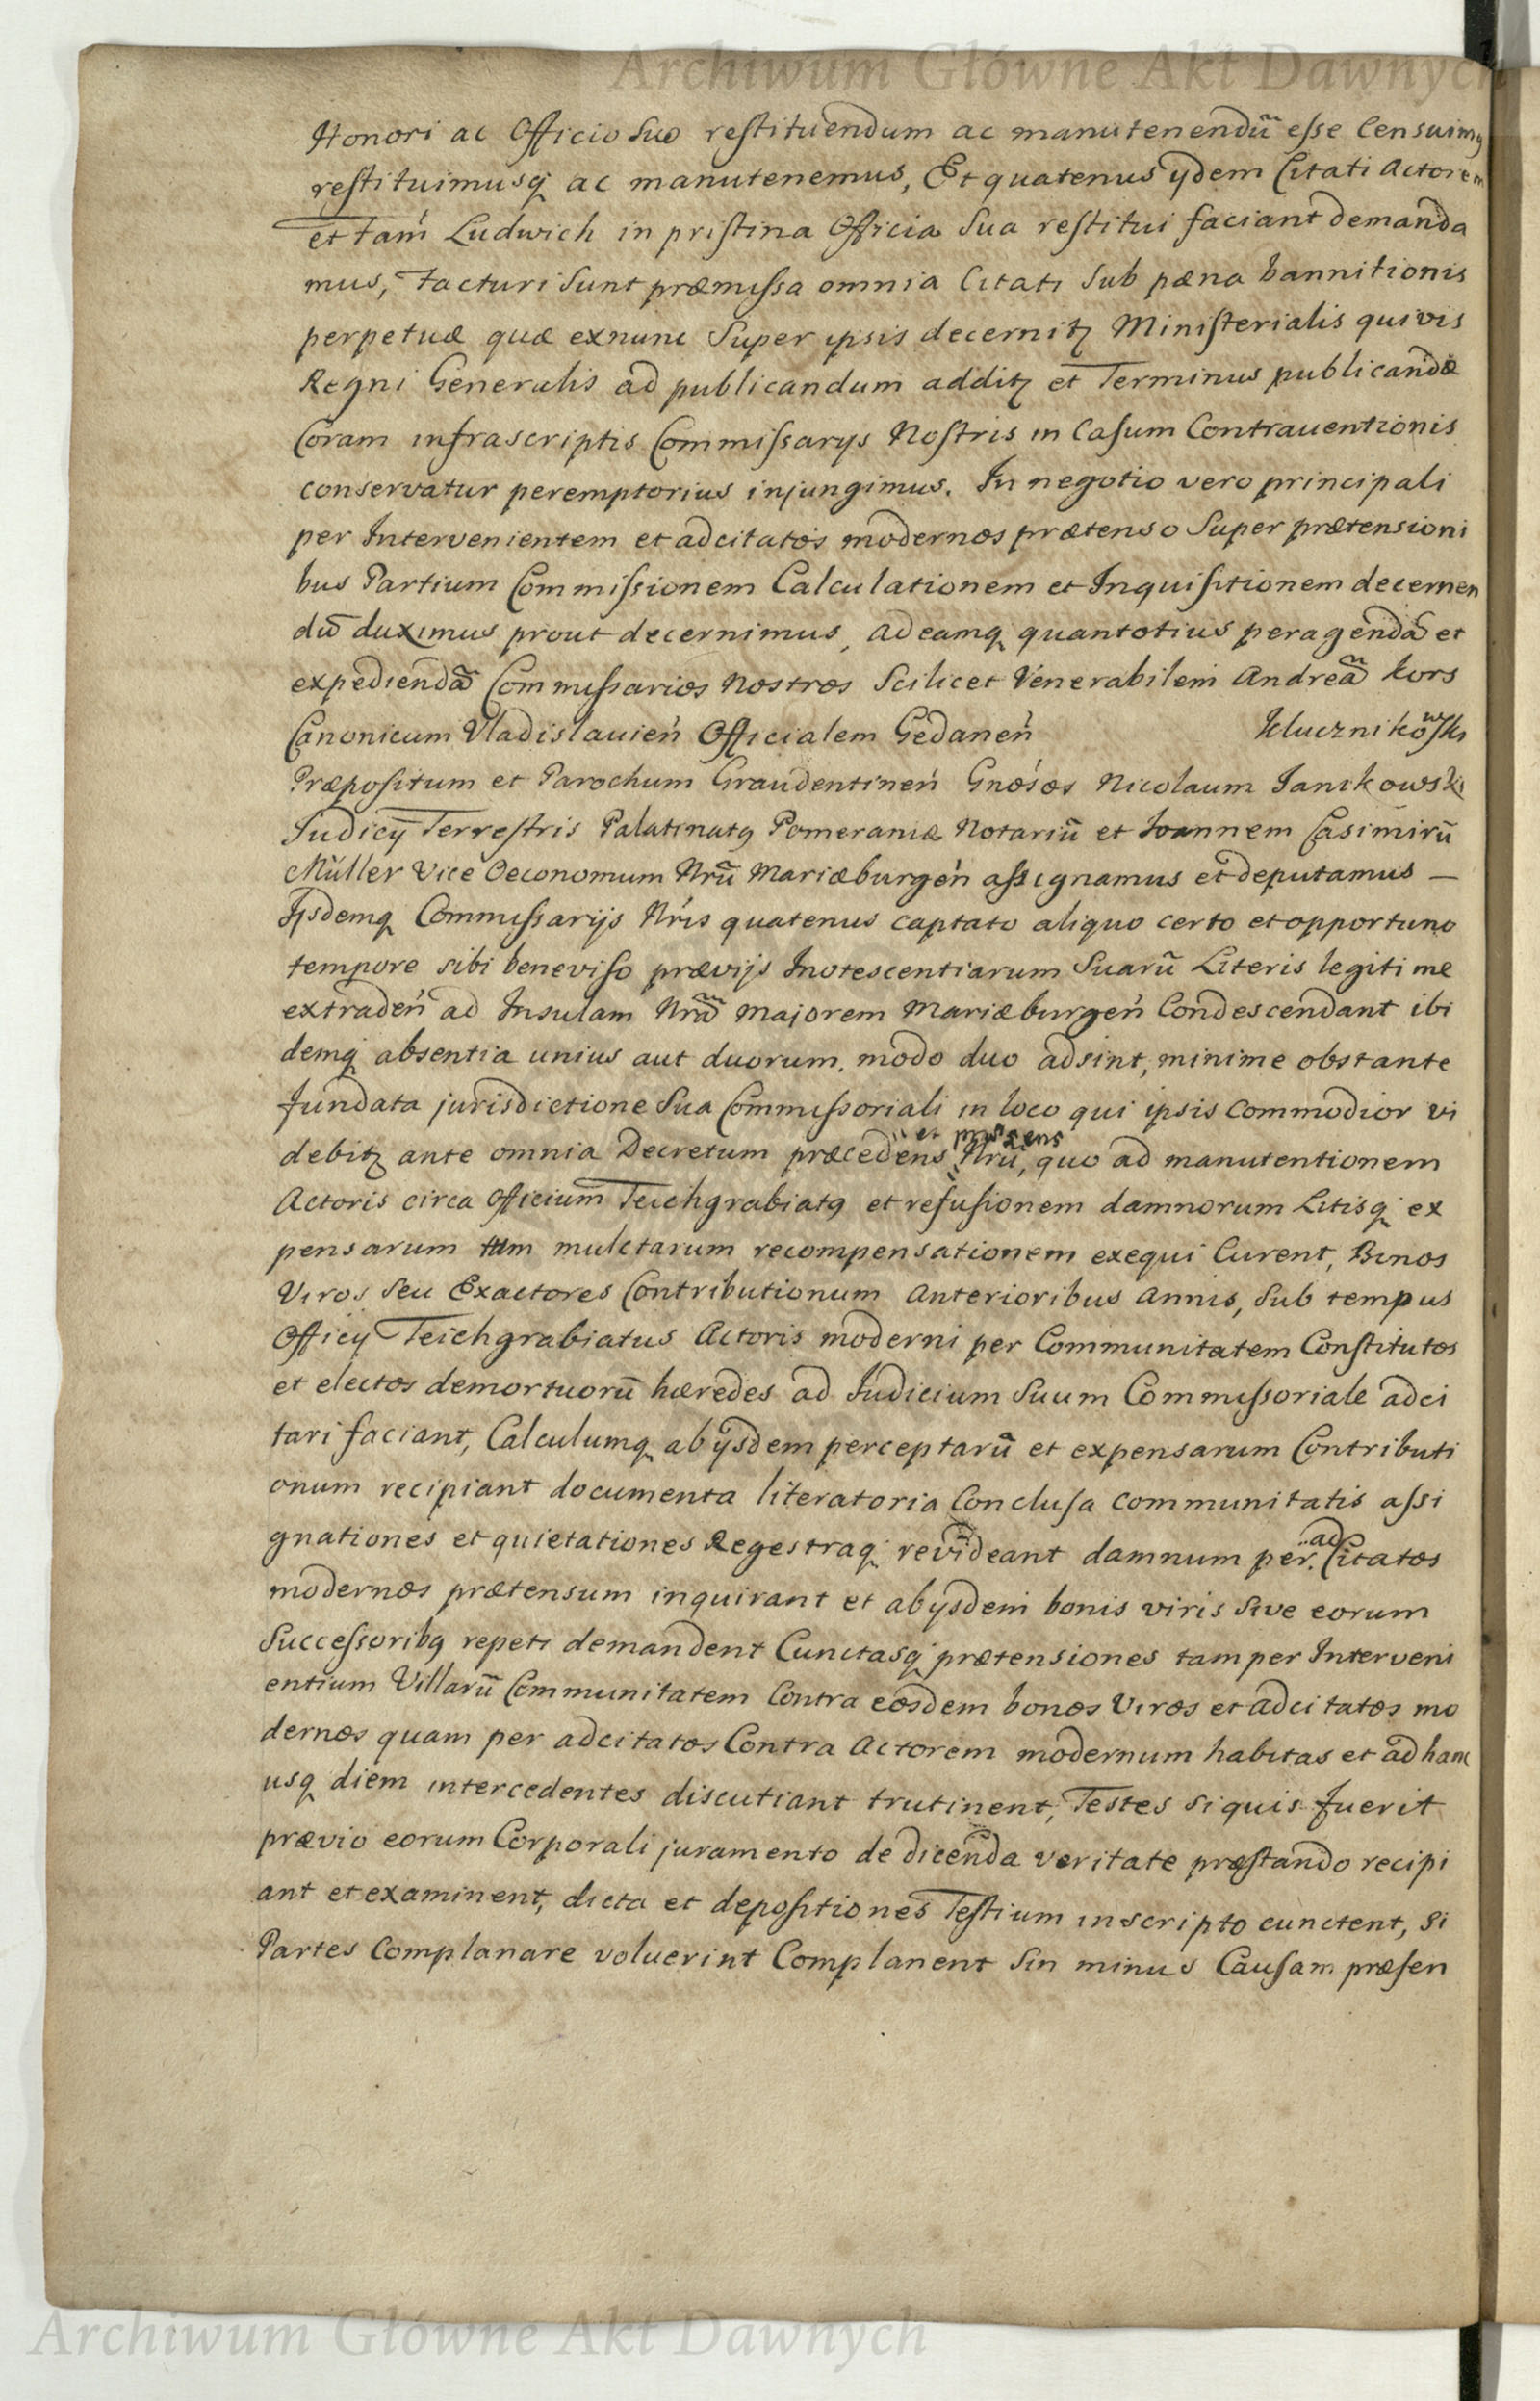 Archiwum Główne Akt Dawnych
Honori ac Officio Suo restituendum ac manutenendũ esse Censuimꝯ
restituimusq̨ ac manutenemus, Et quatenus ijdem Citati Actorem
et fam̃ Ludwich in pristina Officia Sua restitui faciant demanda
mus, Facturi Sunt præmissa omnia Citati Sub pæna bannitionis
perpetuæ quæ exnunc Super ipsis decernitꝫ Ministerialis quivis
Regni Generalis ad publicandum additꝫ et Terminus publicandæ
Coram infrascriptis Commissarijs Nostris in Casum Contrauentionis
conservatur peremptorius injungimus. In negotio vero principali
per Intervenientem et adcitatos modernos prætenso Super prætensioni
bus Partium Commissionem Calculationem et Inquisitionem decernen
dũ duximus prout decernimus, ad eamq̨ quantotius peragendã et
expediendã Commissarios Nostros Scilicet Venerabilem Andreã Kors
Canonicum Vladislauień Officialem Gedaneń Klucznikowski
Præpositum et Parochum Graudentineń Gnösos Nicolaum Janikowski
Judicij Terrestris Palatinatꝯ Pomeraniæ Notariũ et Joannem Casimirũ
Müller Vice Oeconomum Nrũ Mariæburgeń assignamus et deputamus —
Ijsdemq̨ Commissarijs Nŕis quatenus captato aliquo certo et opportuno
tempore sibi beneviso prævijs Inotescentiarum Suarũ Literis legitime
extradeń ad Insulam Nrã Majorem Mariæburgeń Condescendant ibi
demq̨ absentia unius aut duorum, modo duo adsint, minime obstante
fundata jurisdictione Sua Commissoriali in loco qui ipsis Commodior vi
et præsens
debitꝫ ante omnia Decretum præcedens Nrũ, quo ad manutentionem
Actoris circa Officium Teichgrabiatꝯ et refusionem damnorum Litisq̨ ex
pensarum tum mulctarum recompensationem exequi Curent, Bonos
Viros Seu Exactores Contributionum Anterioribus Annis, Sub tempus
Officij Teichgrabiatus Actoris moderni per Communitatem Constitutos
et electos demortuorũ hæredes ad Judicium Suum Commissoriale adci
tari faciant, Calculumq̨ ab ijsdem perceptarũ et expensarum Contributi
onum recipiant documenta literatoria Conclusa Communitatis assi
gnationes et quietationes Regestraq̨ revideant damnum per ad Citatos
modernos prætensum inquirant et ab ijsdem bonis viris Sive eorum
Successoribꝯ repeti demandent Cunctasq̨ prætensiones tam per Interveni
entium Villarũ Communitatem Contra eosdem bonos Viros et adcitatos mo
dernos quam per adcitatos Contra Actorem modernum habitas et ad hanc
usq̨ diem intercedentes discutiant trutinent, Testes si quis fuerit
prævio eorum Corporali juramento de dicenda veritate præstando recipi
ant et examinent, dicta et depositiones Testium in scripto cunctent, Si
Partes Complanare voluerint Complanent Sin minus Causam præsen
Archiwum Główne Akt Dawnych